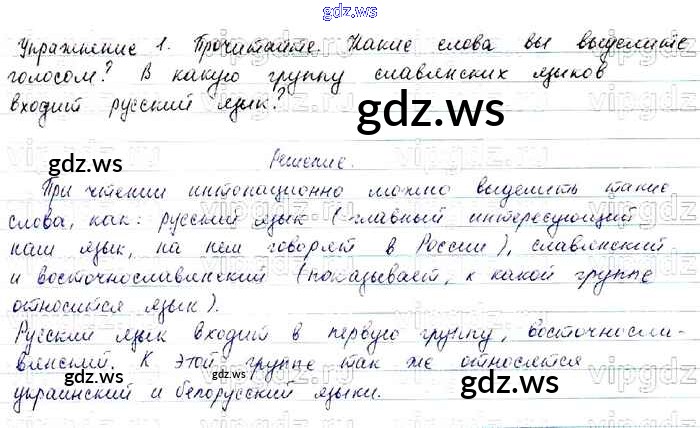 gdz.ws
Упражнение 1. Прочитайте. Какие слова вы выделите
голосом? В какую группу славянских языков
входит русский язык?
gdz.ws
gdz.ws
Решение.
При чтении интонационно можно выделить такие
слова, как: русский язык (главный интересующий
gdz.ws
наш язык, на нем говорят в России), славянский
и восточнославянский (показывает, к какой группе
относится язык).
Русский язык входит в первую группу, восточносла-
вянский. К этой группе так же относятся
gdz.ws
украинский и белорусский языки.
gdz.ws